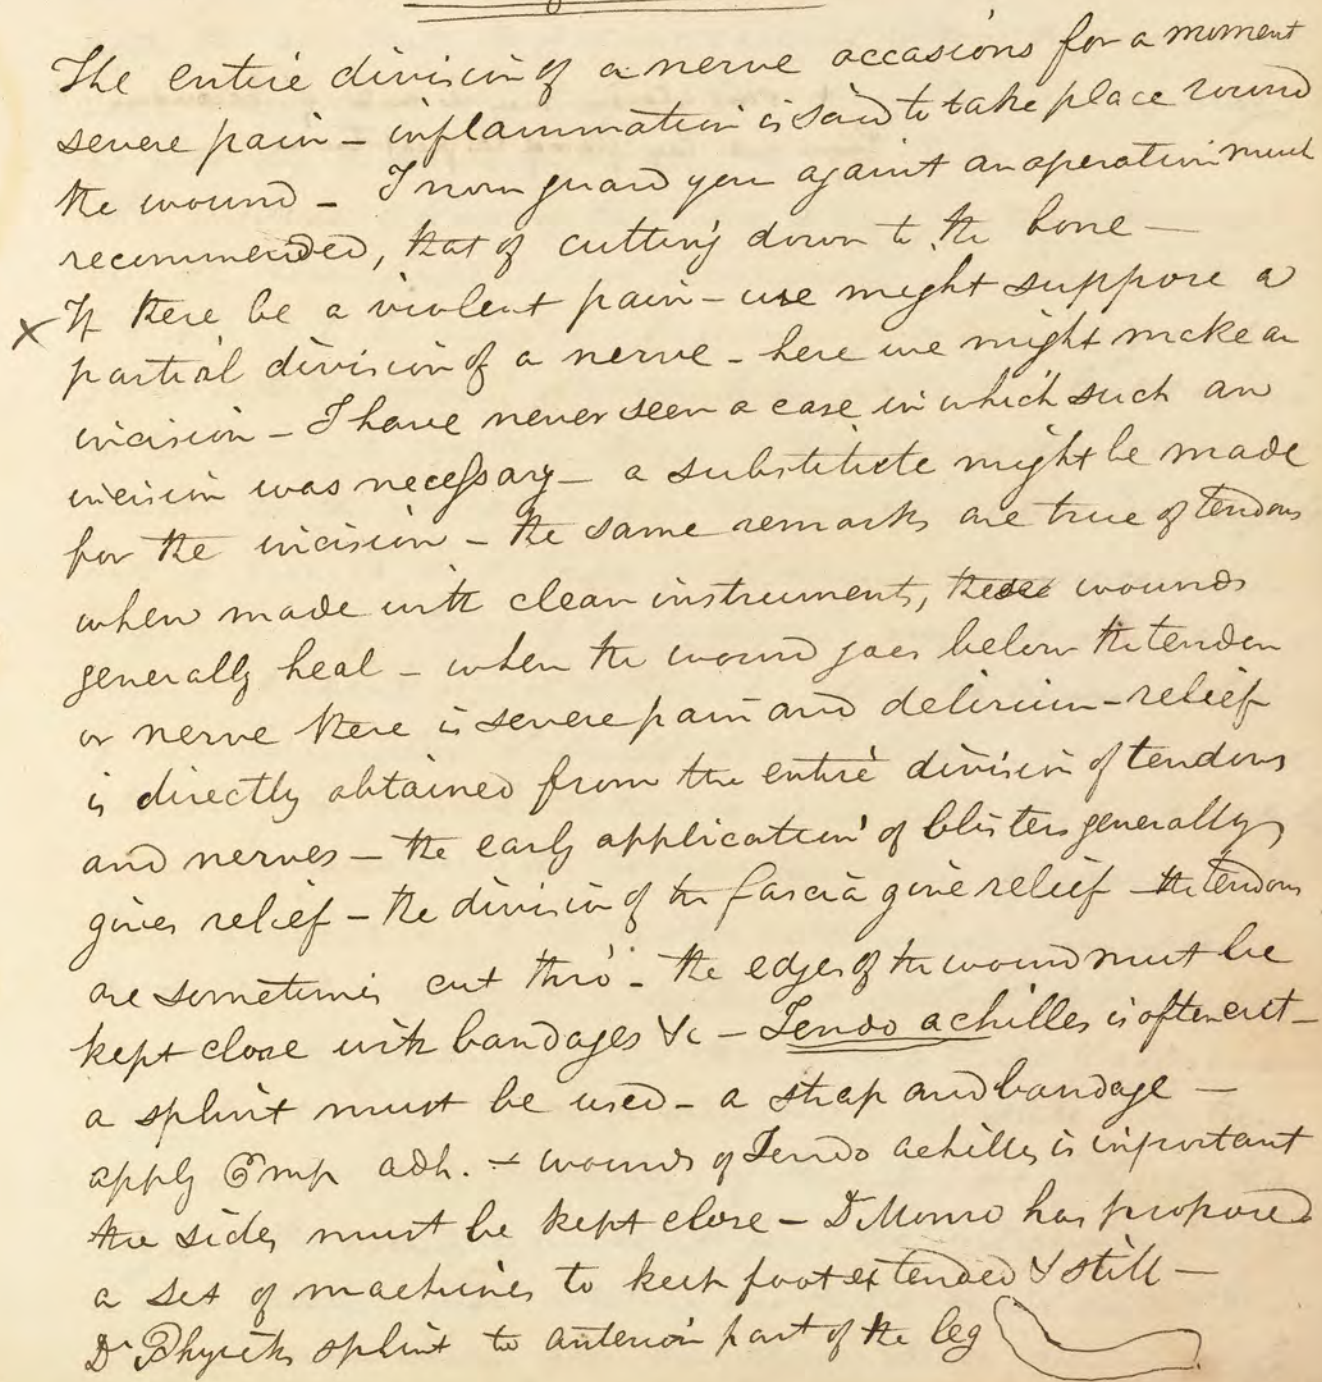 The entire division of a nerve occasions for a moment
severe pain – inflammation is said to take place round
the wound – I now guard you against an operation much
recommended, that of cutting down to the bone –
x If there be a violent pain – we might suppose a
partial division of a nerve – here we might make an
incision – I have never seen a case in which such an
incision was necessary – a substitute might be made
for the incision – the same remarks are true of tendons
when made with clean instruments, these wounds
generally heal – when the wound goes below the tendon
or nerve there is severe pain and delirium – relief
is directly obtained from the entire division of tendons
and nerves – the early application of blisters generally
gives relief – the division of the fascia give relief – the tendons
are sometimes cut thro' – the edges of the wound must be
kept close with bandages &c – Tendo achilles is often cut –
a splint must be used – a strap and bandage –
apply Emp adh. – wounds of Tendo achilles is important
the sides must be kept close – Dr Monro has proposed
a set of machines to keep foot extended & still –
Dr Physicks splint to anterior part of the leg